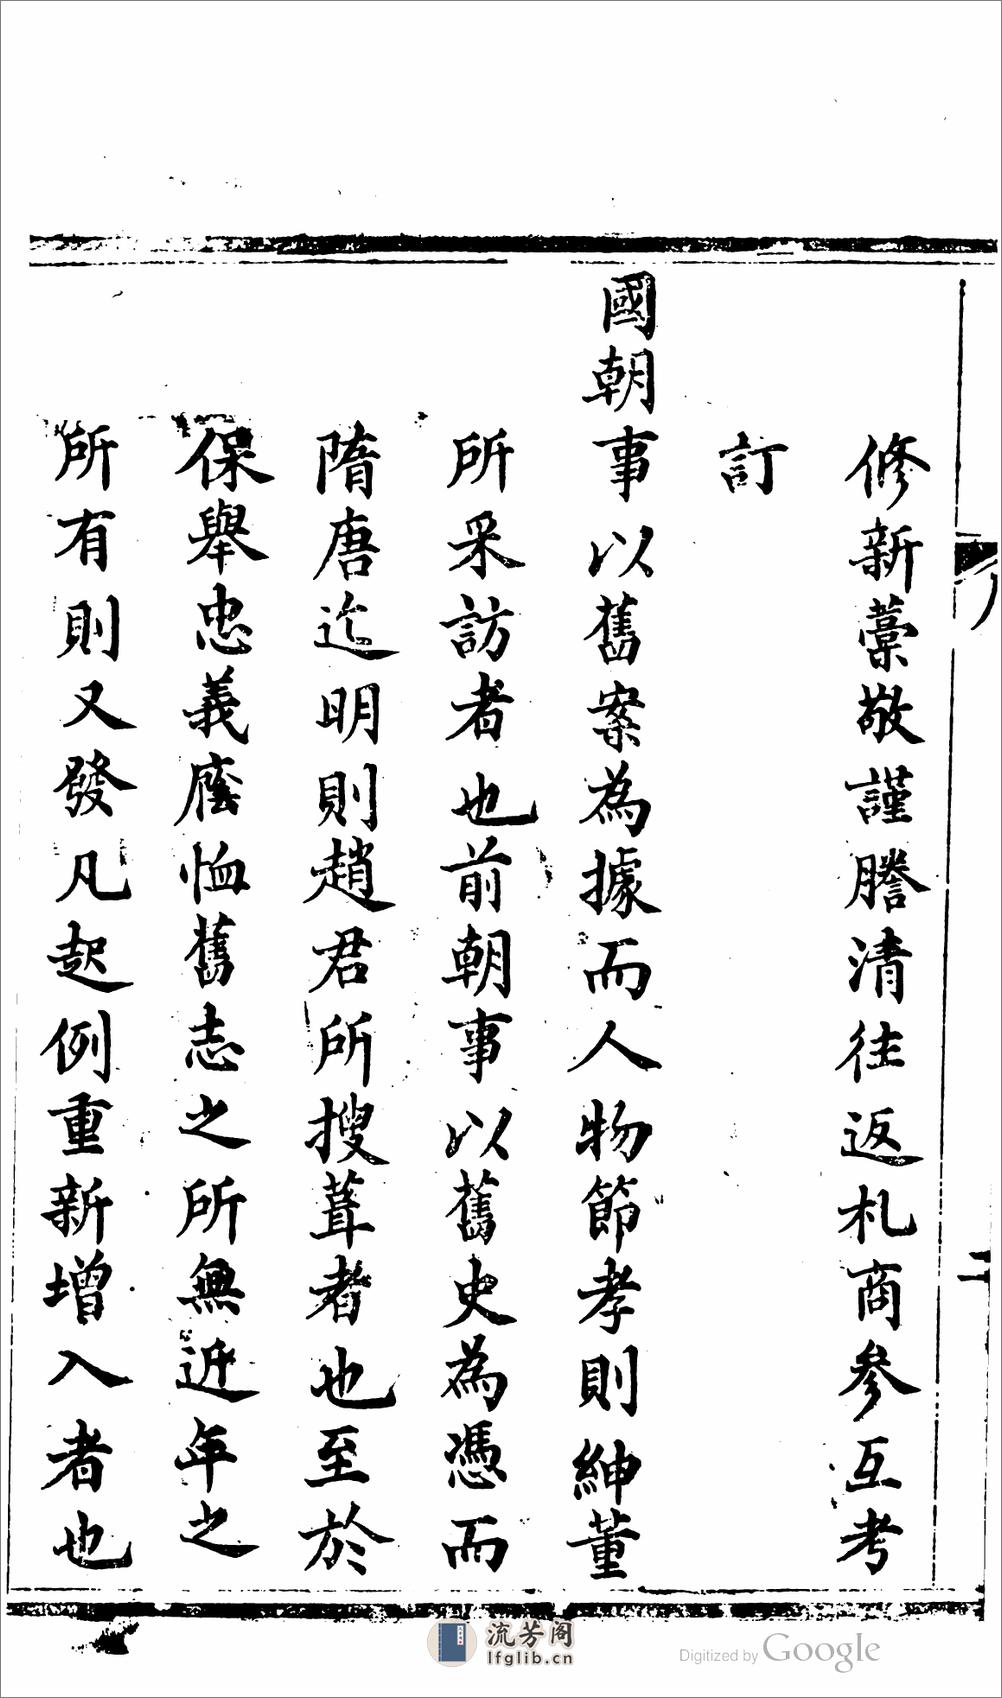 修新藁敬謹謄清往返札商參互考
訂
國朝事以舊案為據而人物節孝則紳董
所采訪者也前朝事以舊史為憑而
隋唐迄明則趙君所搜葺者也至於
保舉忠義廕恤舊志之所無近年之
所有則又發凡起例重新增入者也
二
流芳阁
lfglib.cn
Digitized by Google